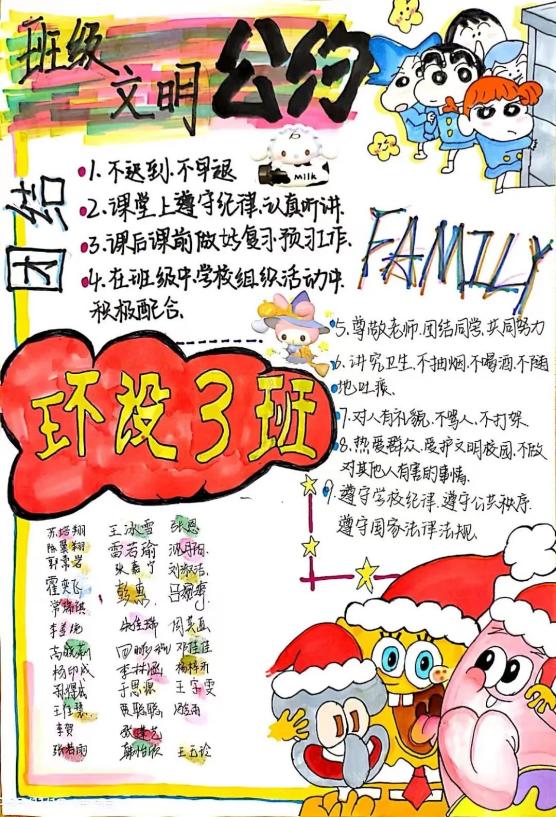 班级
文明
公约
团结
1. 不迟到.不早退
2. 课堂上遵守纪律.认真听讲.
3. 课后课前做好复习.预习工作.
4. 在班级中.学校组织活动中.
积极配合.
Milk
FAMILY
5. 尊敬老师.团结同学.共同努力
6. 讲究卫生.不抽烟.不喝酒.不随
地吐痰.
7. 对人有礼貌.不骂人.不打架.
8. 热爱群众.爱护文明校园.不做
对其他人有害的事情.
9. 遵守学校纪律.遵守公共秩序.
遵守国家法律法规.
环设3班
苏培翔 王冰雪 张恩
陈 翔 雷若瑜
郭 岩 张嘉宁 刘淑洁
霍奕飞 彭惠
李 周英
高 邓佳佳
杨印成 李 杨梓
于思源 王宇雯
王佳慧 贾聪聪
李贺
张若雨 郭怡欣 王玉珍